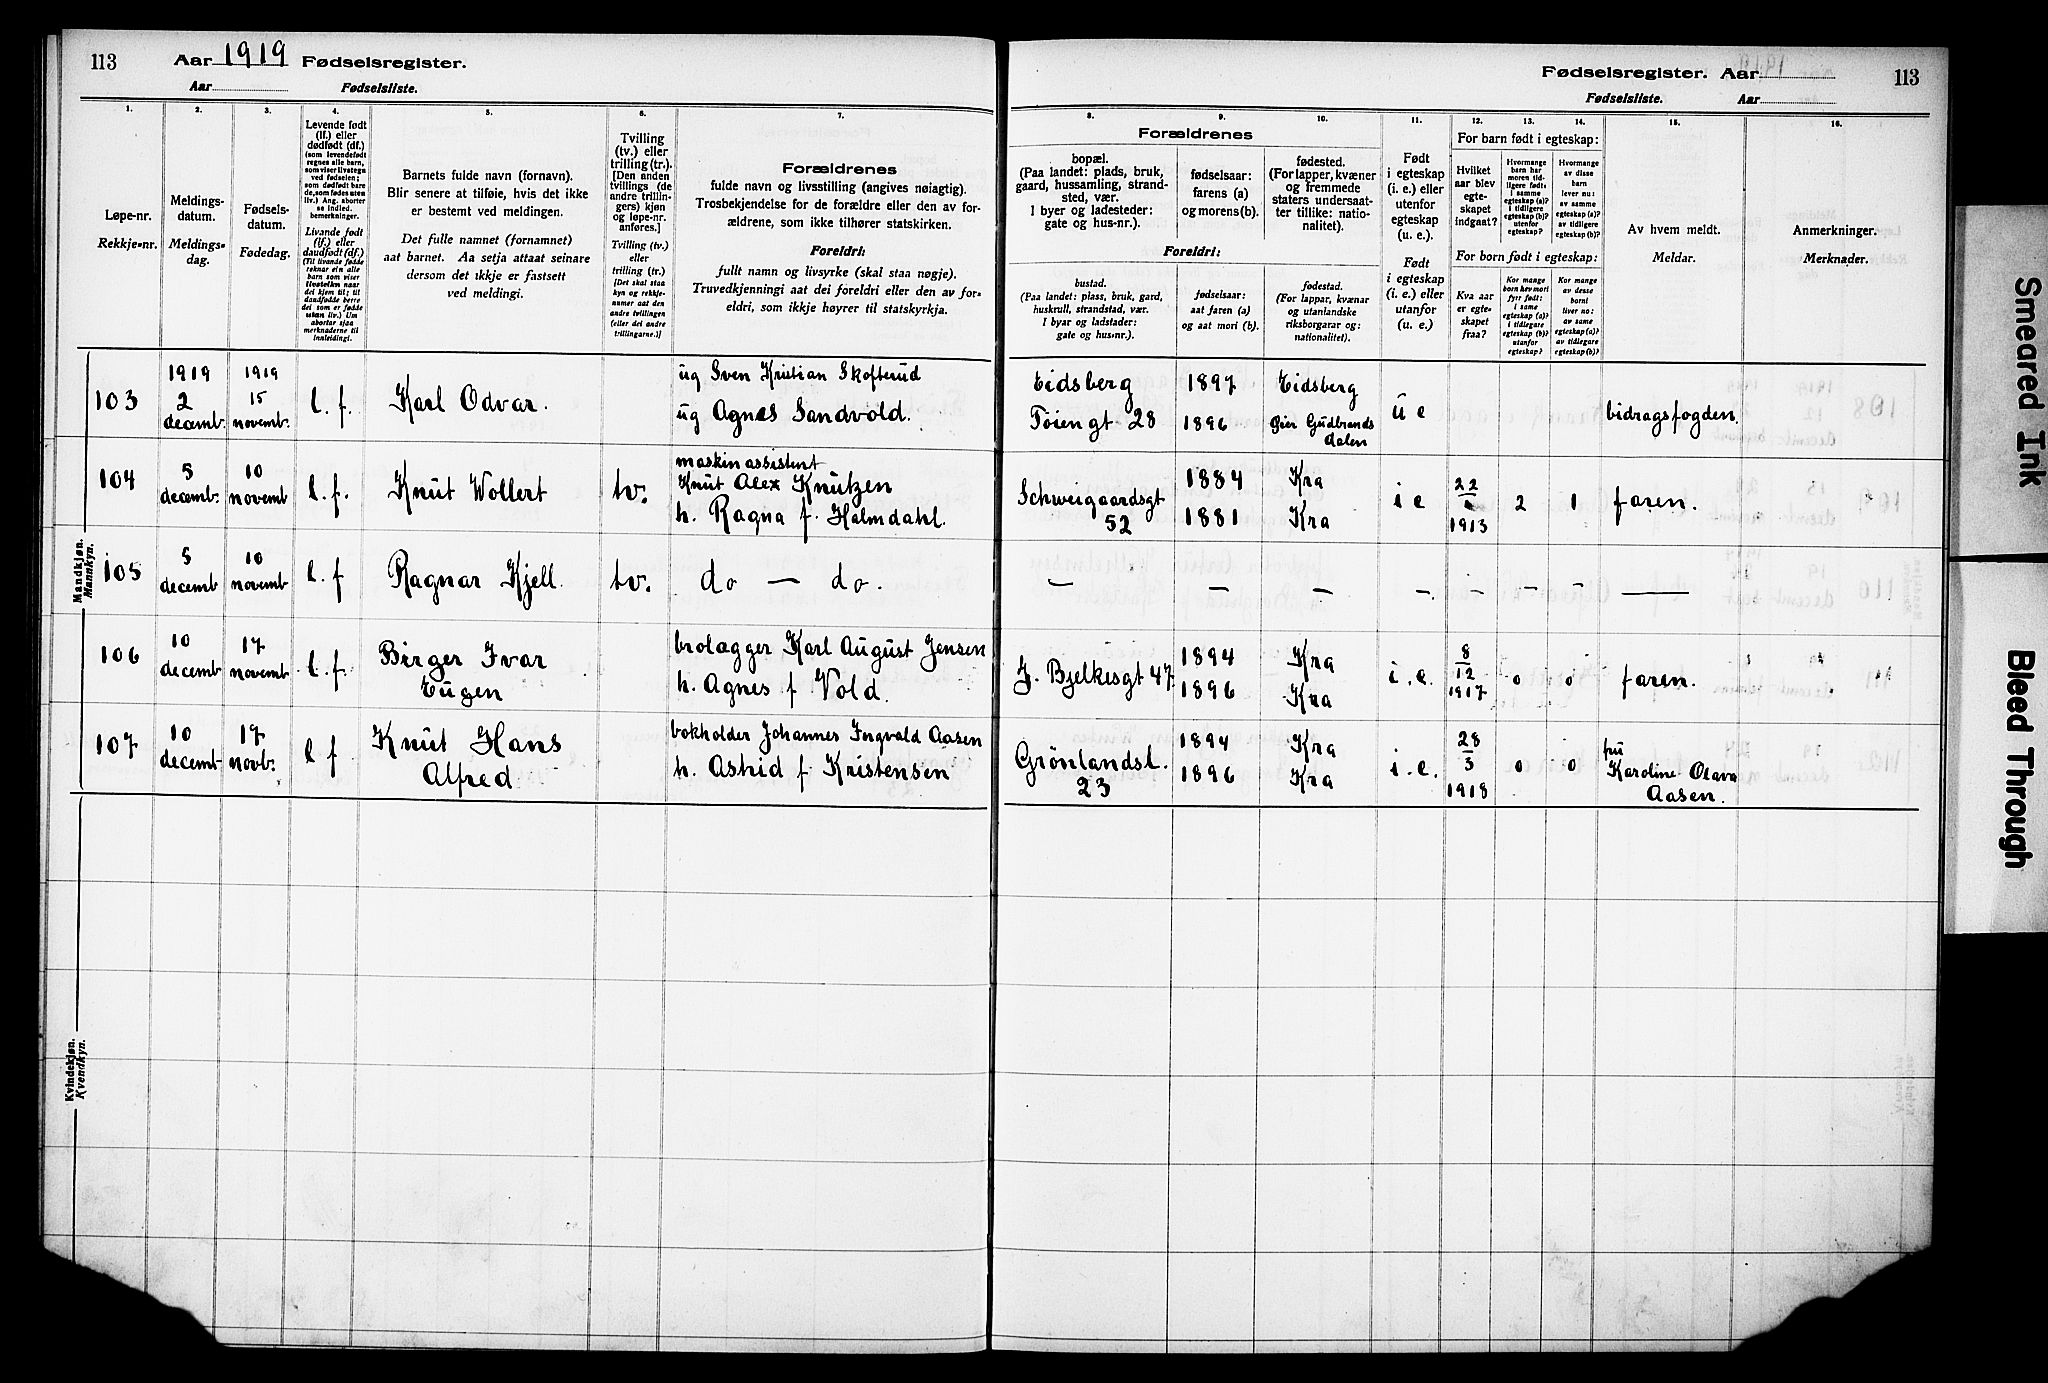 113
Aar 1919 Fødselsregister.
Aar Fødselsliste.
Fødselsregister. Aar
113
Fødselsliste. Aar
1.
Løpe-nr.
Rekkje-nr.
2.
Meldings-
datum.
Meldings-
dag.
3.
Fødsels-
datum.
Fødedag.
4.
Levende født
(lf.) eller
dødfødt (df.)
(som levendefødt
regnes alle barn,
som viser livstegn
ved fødselen;
som dødfødt bare
de, som fødes uten
liv.) Ang. aborter
se indled.
bemerkninger.
Livande født
(lf.) eller
daudfødt (df.)
5.
Barnets fulde navn (fornavn).
Blir senere at tilføie, hvis det ikke
er bestemt ved meldingen.
Det fulle namnet (fornamnet)
aat barnet. Aa setja attaat seinare
dersom det ikkje er fastsett
ved meldingi.
6.
Tvilling
(tv.) eller
trilling (tr.).
[Den anden
tvillings (de
andre trillin-
gers) kjøn
og løpe-nr.
anføres.]
Tvilling (tv.)
eller
trilling (tr.)
[Det skal staa
kyn og rekkje-
nummer aat den
andre tvillingen
(eller dei andre
trillingarne.)]
7.
Forældrenes
fulde navn og livsstilling (angives nøiagtig).
Trosbekjendelse for de forældre eller den av for-
ældrene, som ikke tilhører statskirken.
Foreldri:
fullt namn og livsyrke (skal staa nøgje).
Truvedkjenningi aat dei foreldri eller den av for-
eldri, som ikkje høyrer til statskyrkja.
8.
9.
10.
Forældrenes
bopæl.
(Paa landet: plads, bruk,
gaard, hussamling, strand-
sted, vær.
I byer og ladesteder:
gate og hus-nr.).
fødselsaar:
farens (a)
og morens (b).
fødested.
(For lapper, kvæner
og fremmede
staters undersaat-
ter tillike: natio-
nalitet).
Foreldri:
bustad.
(Paa landet: plass, bruk, gard,
huskrull, strandstad, vær.
I byar og ladstader:
gate og hus-nr.).
fødselsaar:
aat faren (a)
og aat mori (b).
fødestad.
(For lappar, kvænar
og utanlandske
riksborgarar og:
nationalitet).
11.
Født
i egteskap
(i. e.) eller
utenfor
egteskap
(u. e.).
Født
i egteskap
(i. e.) eller
utanfor
(u. e.)
12.
13.
14.
For barn født i egteskap:
Hvilket
aar blev
egte-
skapet
indgaat?
Hvormange
barn har
moren tid-
ligere født:
i samme
egteskap (a)?
i tidligere
egteskap (b)?
utenfor
egteskap?
Hvormange
av disse
barn
lever nu:
av samme
egteskap (a)?
av tidligere
egteskap (b)?
For born født i egteskap:
Kva aar
er egte-
skapet
fraa?
Kor mange
born hev mori
fyrr født:
i same
egteskap (a)?
i tidlegare
egteskap (b)?
utanfor
egteskap?
Kor mange
av desse
borni
liver no:
av same
egteskap (a)?
av tidlegare
egteskap (b)?
15.
Av hvem meldt.
Meldar.
16.
Anmerkninger.
Merknader.
Mandkjøn.
Mannkyn.
103
1919
2
decemb.
1919
15
novemb.
l. f.
Karl Odvar.
ug Sven Kristian Skofterud
ug Agnes Sandvold.
Eidsberg
Töiengt 28
1897
1896
Eidsberg
Öier Gudbrands
dalen
u e
bidragsfogden.
104
5
decemb.
10
novemb
l. f.
Knut Wollert
tv.
maskinassistent
Knut Alex Knutzen
h. Ragna f. Halmdahl.
Schweigaardsgt
52
1884
1881
Kra
Kra
i e
22
1913
2
1
faren.
105
5
decemb
10
novemb
l. f
Ragnar Kjell.
tv.
do — do.
—
—
—
—
—
—
—
—
106
10
decemb
17
novemb
l. f.
Birger Ivar
Eugen
brolægger Karl August Jensen
h. Agnes f Vold.
J. Bjelkesgt 47
1894
1896
Kra
Kra
i. e.
8
12
1917
0
0
faren.
107
10
decemb
17
novb.
l f
Knut Hans
Alfred
bokholder Johannes Ingvald Aasen
h. Astrid f Kristensen
Grönlandsl.
23
1894
1896
Kra
Kra
i. e.
28
3
1918
0
0
fru
Karoline Olava
Aasen.
Kvindekjøn.
Kvendkyn.
Smeared Ink
Bleed Through